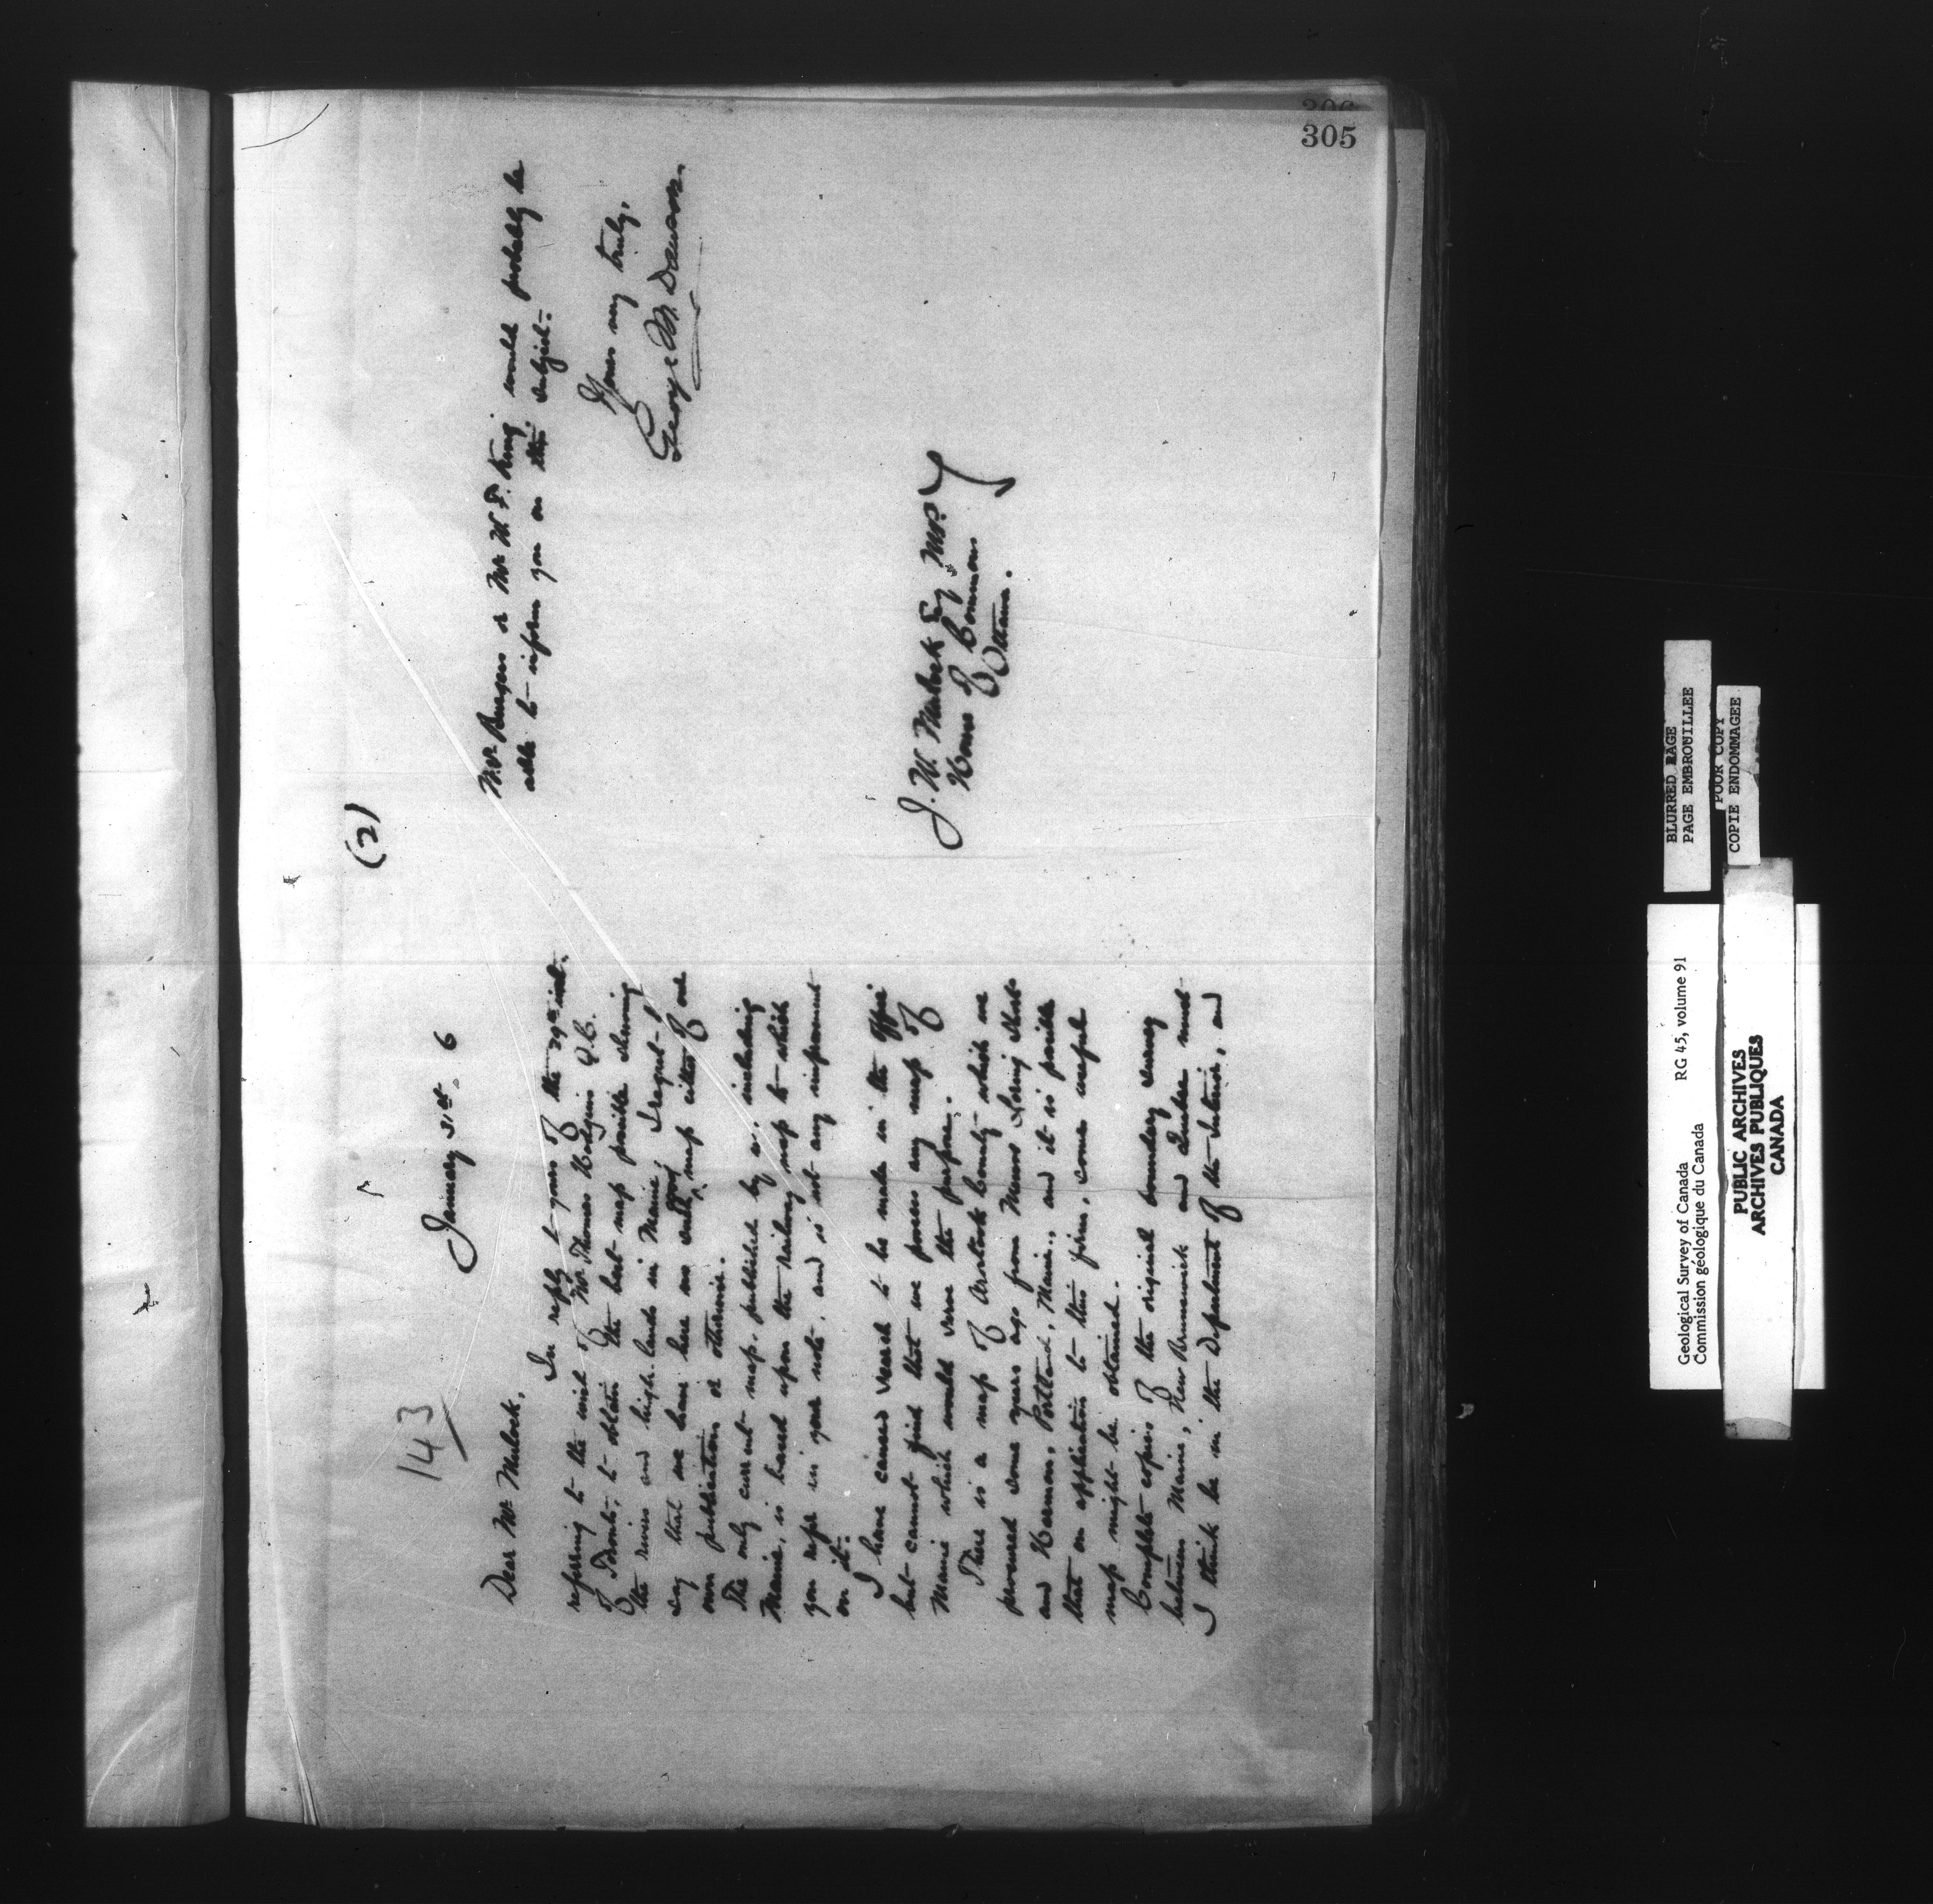 306
305
143
January 31st 6
Dear Mr Mulock,
In reply to yours of the 29th inst.
referring to the wish of Mr. Thomas Hodgins Q.C.
of Toronto, to obtain the best map possible showing
the rivers and high-lands in Maine, I regret to
say that we have here no such good map either of our
own publication or otherwise.
The only current map published by us, including
Maine, is based upon the railway map to which
you refer in your note, and is not any improvement
on it.
I have caused search to be made in the office
but cannot find that we possess any map of
Maine which would serve the purpose.
There is a map of Aroostook County which we
procured some years ago from Messrs Loring Short
and Harmon, Portland, Maine, and it is possible
that on application to this firm, some useful
map might be obtained.
Complete copies of the original boundary survey
between Maine, New Brunswick and Quebec must
I think be in the Department of the Interior, and
(2)
Mr Burgess or Mr W. F. King would probably be
able to inform you on this subject.
Yours very truly,
George M. Dawson.
J. W. Mulock Esq. M.P.
House of Commons
Ottawa.
BLURRED PAGE
PAGE EMBROUILLEE
POOR COPY
COPIE ENDOMMAGEE
Geological Survey of Canada RG 45, volume 91
Commission géologique du Canada
PUBLIC ARCHIVES
ARCHIVES PUBLIQUES
CANADA